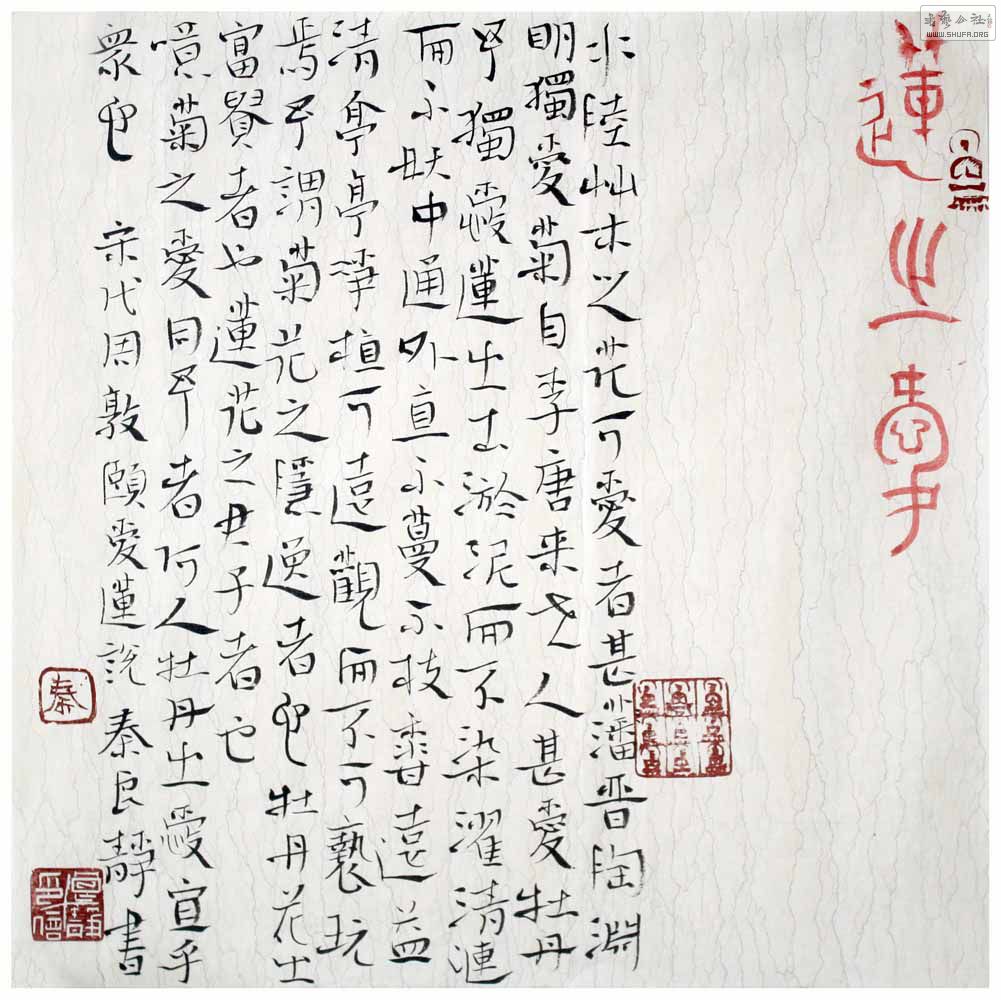 蓮之
水陸艸木之花可愛者甚藩晉陶淵
明獨愛菊自李唐来世人甚愛牡丹
予獨愛蓮之出淤泥而不染濯清漣
而不妖中通外直不蔓不枝香遠益
清亭亭淨植可遠觀而不可褻玩
焉予謂菊花之隱逸者也牡丹花之
富貴者也蓮花之君子者也
噫菊之愛同予者何人牡丹之愛宜乎
衆也 宋代周敦頤愛蓮説 秦良靜書
秦
WWW.SHUFA.ORG